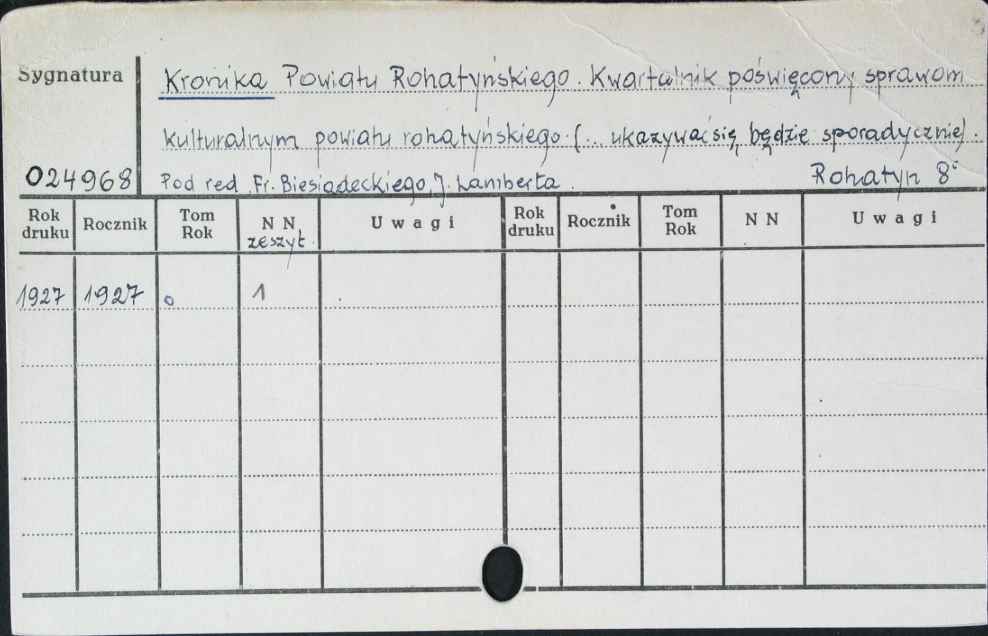 Sygnatura
Kronika Powiatu Rohatyńskiego. Kwartalnik poświęcony sprawom
kulturalnym powiatu rohatyńskiego (... ukazywać się będzie sporadycznie).
024968 Pod red. Fr. Biesiadeckiego, J. Lamberta. Rohatyn 8°
Rok druku Rocznik Tom Rok NN zeszyt Uwagi Rok druku Rocznik Tom Rok NN Uwagi
1927 1927 0 1